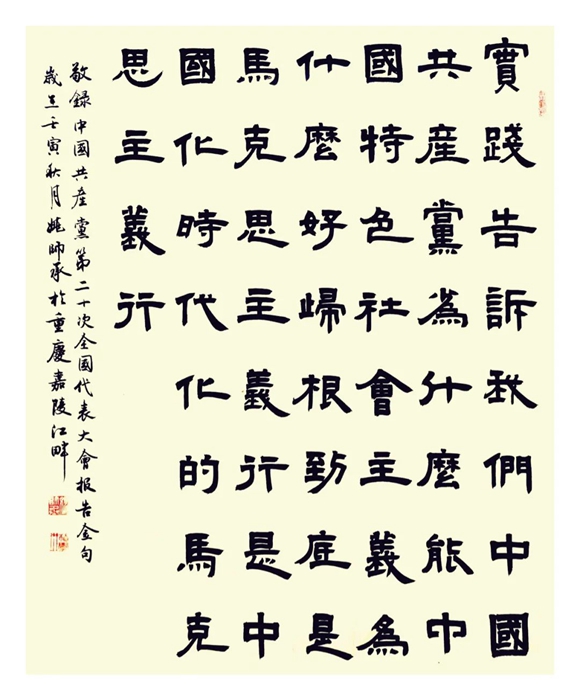 實踐告訴我們中國
共産黨為什麼能中
國特色社會主義為
什麼好歸根到底是
馬克思主義行是中
國化時代化的馬克
思主義行
敬錄中國共産黨第二十次全國代表大會报告金句
歲在壬寅秋月姚師承於重慶嘉陵江畔